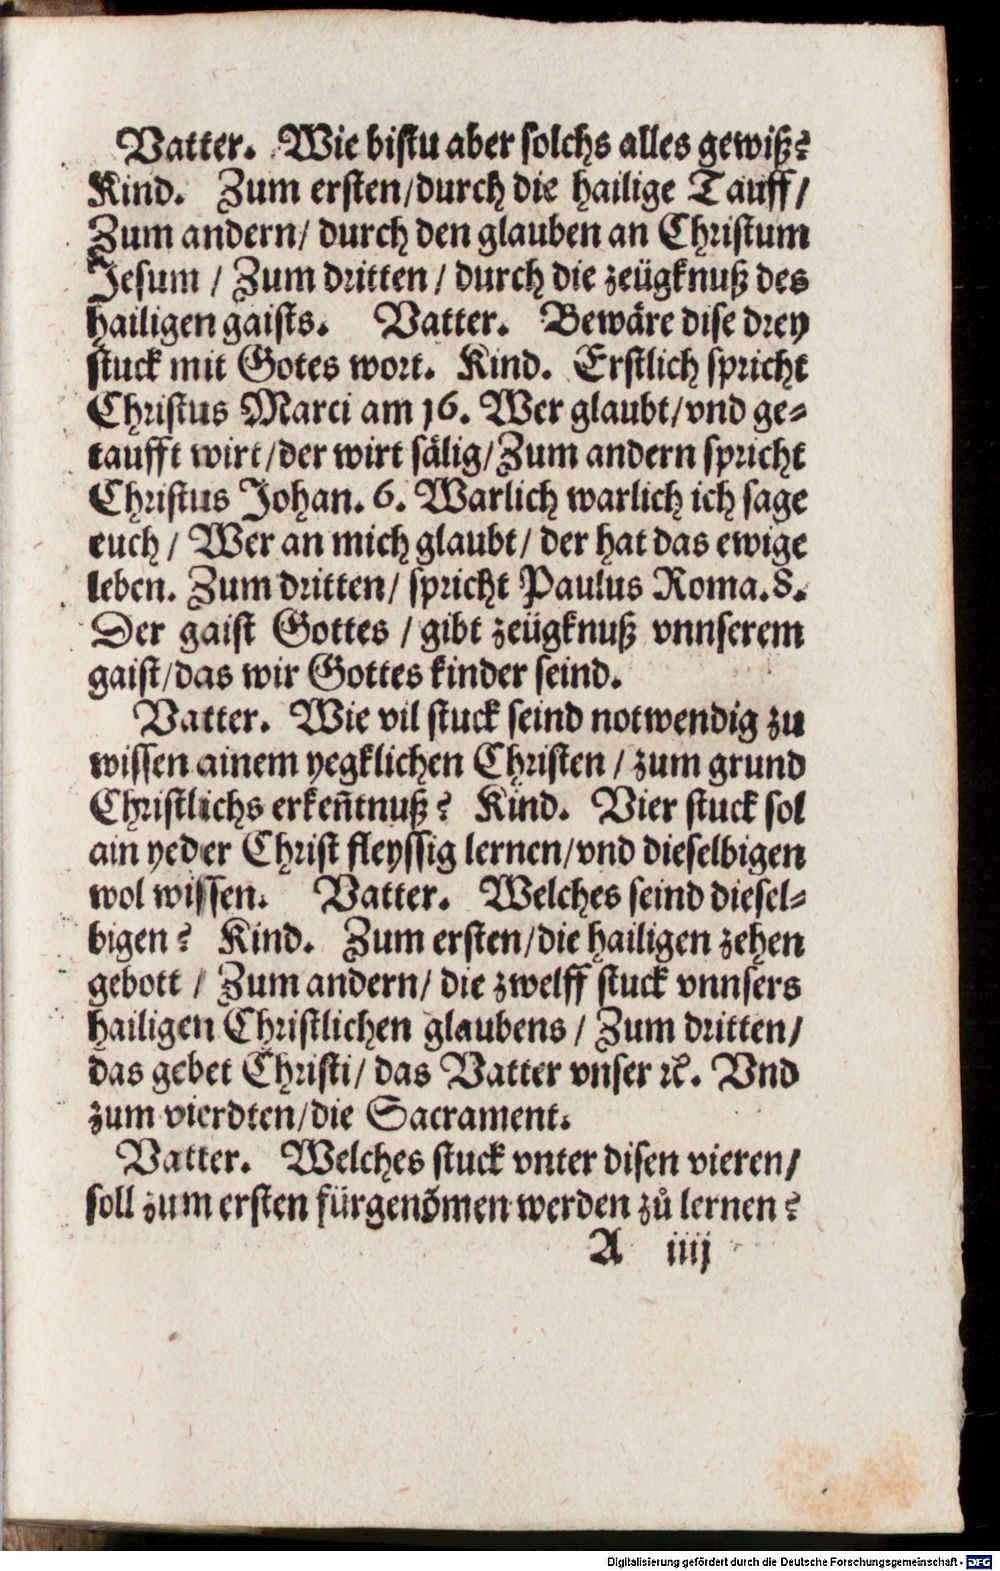 Vatter. Wie bistu aber solchs alles gewiß?
Kind. Zum ersten/durch die hailige Tauff/
Zum andern/ durch den glauben an Christum
Jesum / Zum dritten / durch die zeügknuß des
hailigen gaists. Vatter. Bewäre dise drey
stuck mit Gotes wort. Kind. Erstlich spricht
Christus Marci am 16. Wer glaubt/vnd ge-
taufft wirt/der wirt sälig/Zum andern spricht
Christus Johan. 6. Warlich warlich ich sage
euch / Wer an mich glaubt/ der hat das ewige
leben. Zum dritten/ spricht Paulus Roma. 8.
Der gaist Gottes / gibt zeügknuß vnnserem
gaist/das wir Gottes kinder seind.
Vatter. Wie vil stuck seind notwendig zu
wissen ainem yegklichen Christen / zum grund
Christlichs erkeñtnuß? Kind. Vier stuck sol
ain yeder Christ fleyssig lernen/vnd dieselbigen
wol wissen. Vatter. Welches seind diesel-
bigen? Kind. Zum ersten/die hailigen zehen
gebott / Zum andern/ die zwelff stuck vnnsers
hailigen Christlichen glaubens / Zum dritten/
das gebet Christi/ das Vatter vnser ꝛc. Vnd
zum vierdten/die Sacrament.
Vatter. Welches stuck vnter disen vieren/
soll zum ersten fürgenõmen werden zů lernen?
A iiij
Digitalisierung gefördert durch die Deutsche Forschungsgemeinschaft - DFG